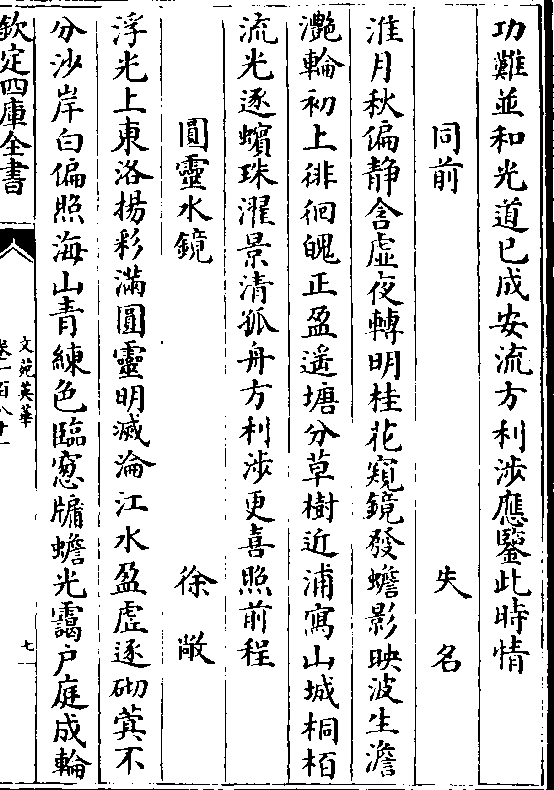 功難並和光道已成安流方利涉應鑒此時情
同前 失名
淮月秋偏静含虚夜轉明桂花窺鏡發蟾影映波生澹
灔輪初上徘徊魄正盈遥塘分草樹近浦寫山城桐栢
流光逐蠙珠濯景清孤舟方利涉更喜照前程
圓靈水鏡 徐敞
浮光上東洛揚彩滿圓靈明滅淪江水盈虚逐砌蓂不
分沙岸白偏照海山青練色臨窓牖蟾光靄戸庭成輪
欽定四庫全書
文苑英華
卷一百八十一
七